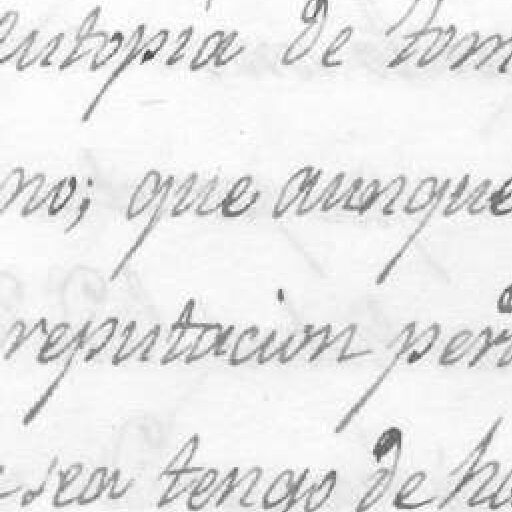 eutopia de tom
no; que aunque
reputacion peri
sea tengo de ha